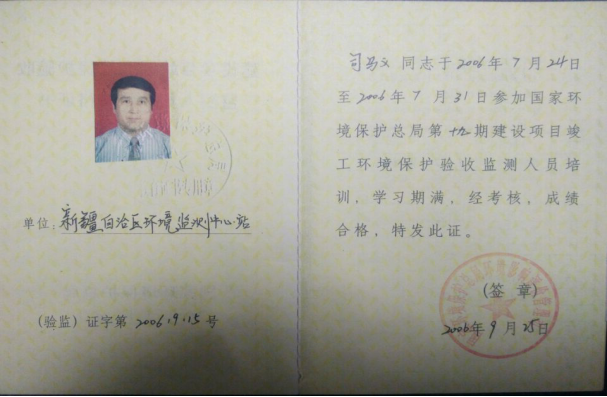 单位：新疆自治区环境监测中心站
（验监）证字第 2006.9.15 号
司马义 同志于2006年7月24日
至2006年7月31日参加国家环
境保护总局第十九期建设项目竣
工环境保护验收监测人员培
训，学习期满，经考核，成绩
合格，特发此证。
（签 章）
2006年9月25日